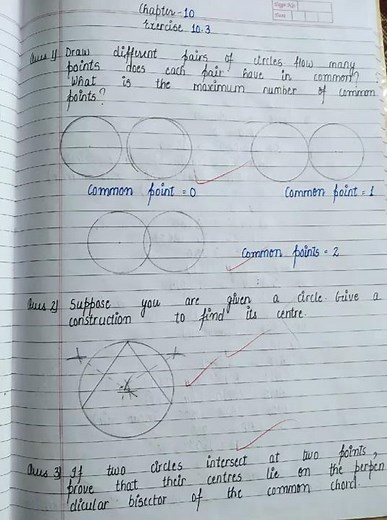 Chapter-10
Exercise 10.3
Page No.
Date
Ques 1) Draw different pairs of circles How many
points does each pair have in common?
What is the maximum number of common
points?
Common point = 0
Common point = 1
Common points = 2
Ques 2) Suppose you are given a circle. Give a
construction to find its centre
Ques 3) If two circles intersect at two points,
prove that their centres lie on the perpen
dicular bisector of the common chord.